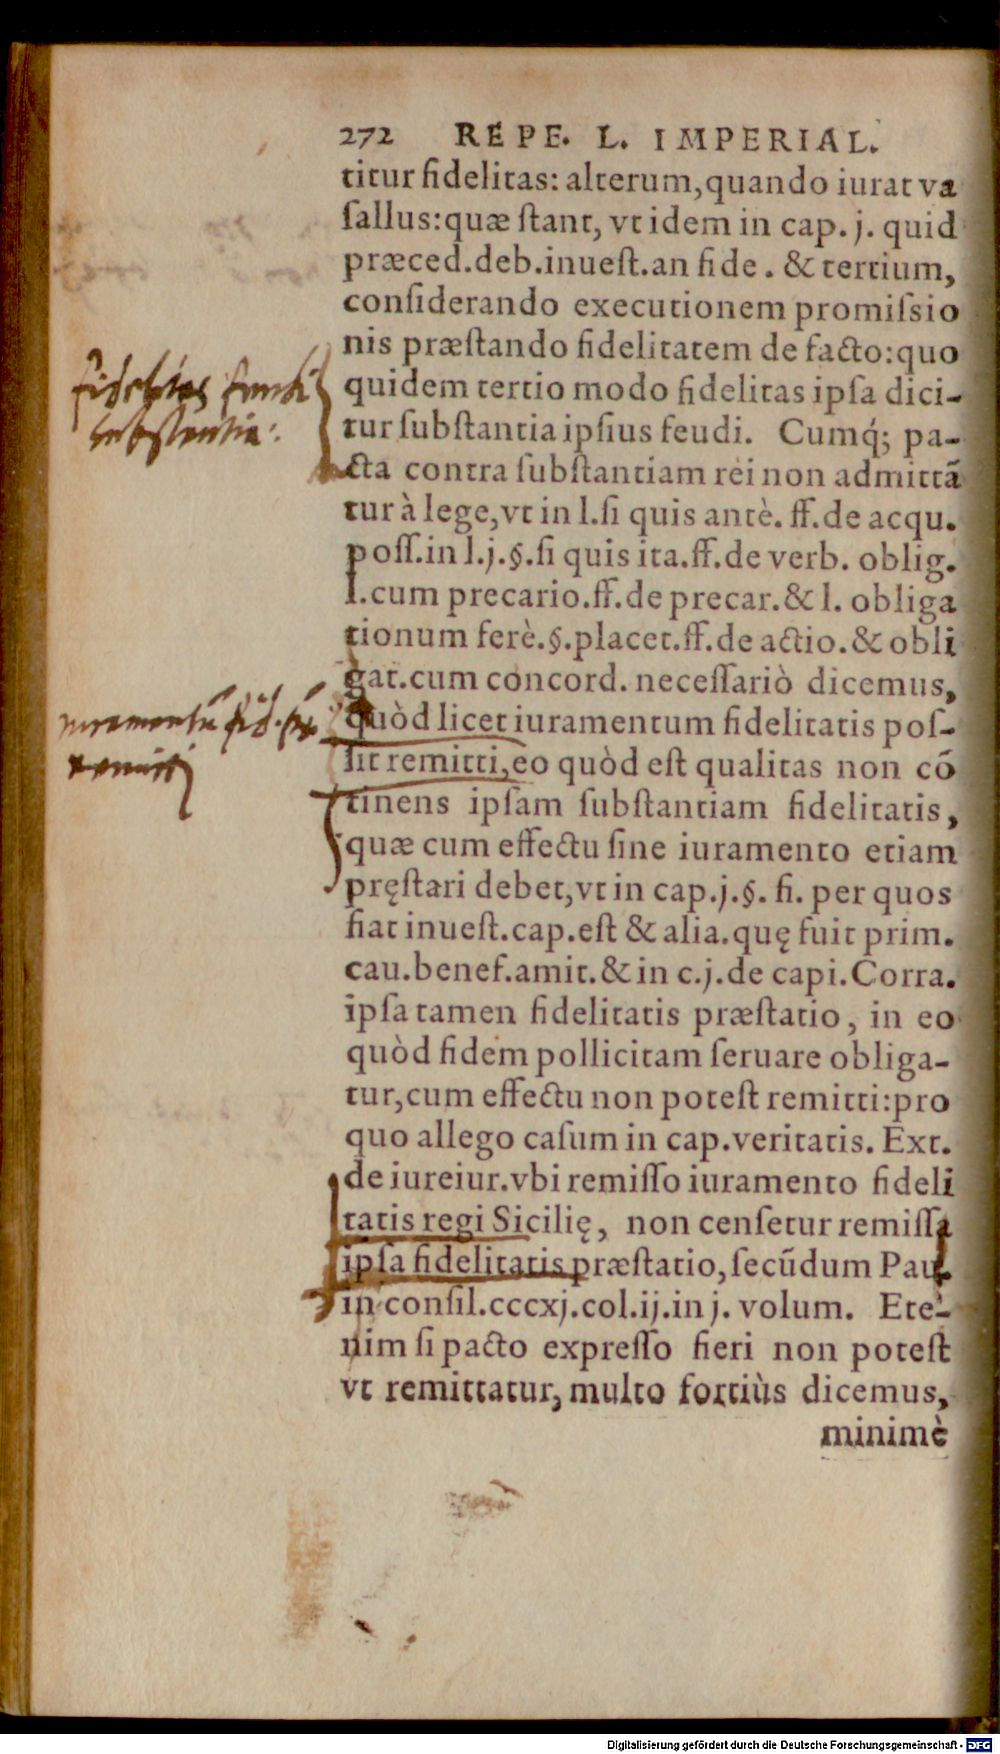 272 REPE. L. IMPERIAL.
titur fidelitas: alterum, quando iurat va
ſallus: quæ ſtant, vt idem in cap. j. quid
præced. deb. inueſt. an fide. & tertium,
conſiderando executionem promiſsio
nis præſtando fidelitatem de facto: quo
quidem tertio modo fidelitas ipſa dici-
tur ſubſtantia ipſius feudi. Cumq́; pa-
cta contra ſubſtantiam rei non admittã
tur à lege, vt in l. ſi quis antè. ff. de acqu.
poſſ. in l. j. §. ſi quis ita. ff. de verb. oblig.
l. cum precario. ff. de precar. & l. obliga
tionum ferè. §. placet. ff. de actio. & obli
gat. cum concord. neceſſariò dicemus,
quòd licet iuramentum fidelitatis poſ-
ſit remitti, eo quòd eſt qualitas non cõ
tinens ipſam ſubſtantiam fidelitatis,
quæ cum effectu ſine iuramento etiam
pręſtari debet, vt in cap. j. §. fi. per quos
fiat inueſt. cap. eſt & alia. quę fuit prim.
cau. benef. amit. & in c. j. de capi. Corra.
ipſa tamen fidelitatis præſtatio, in eo
quòd fidem pollicitam ſeruare obliga-
tur, cum effectu non poteſt remitti: pro
quo allego caſum in cap. veritatis. Ext.
de iureiur. vbi remiſſo iuramento fideli
tatis regi Sicilię, non cenſetur remiſſa
ipſa fidelitatis præſtatio, ſecũdum Pau.
in conſil. cccxj. col. ij. in j. volum. Ete-
nim ſi pacto expreſſo fieri non poteſt
vt remittatur, multo fortiùs dicemus,
minimè
fidelitas feudi
substantia.
iuramentũ fid.
remitti
Digitalisierung gefördert durch die Deutsche Forschungsgemeinschaft - DFG